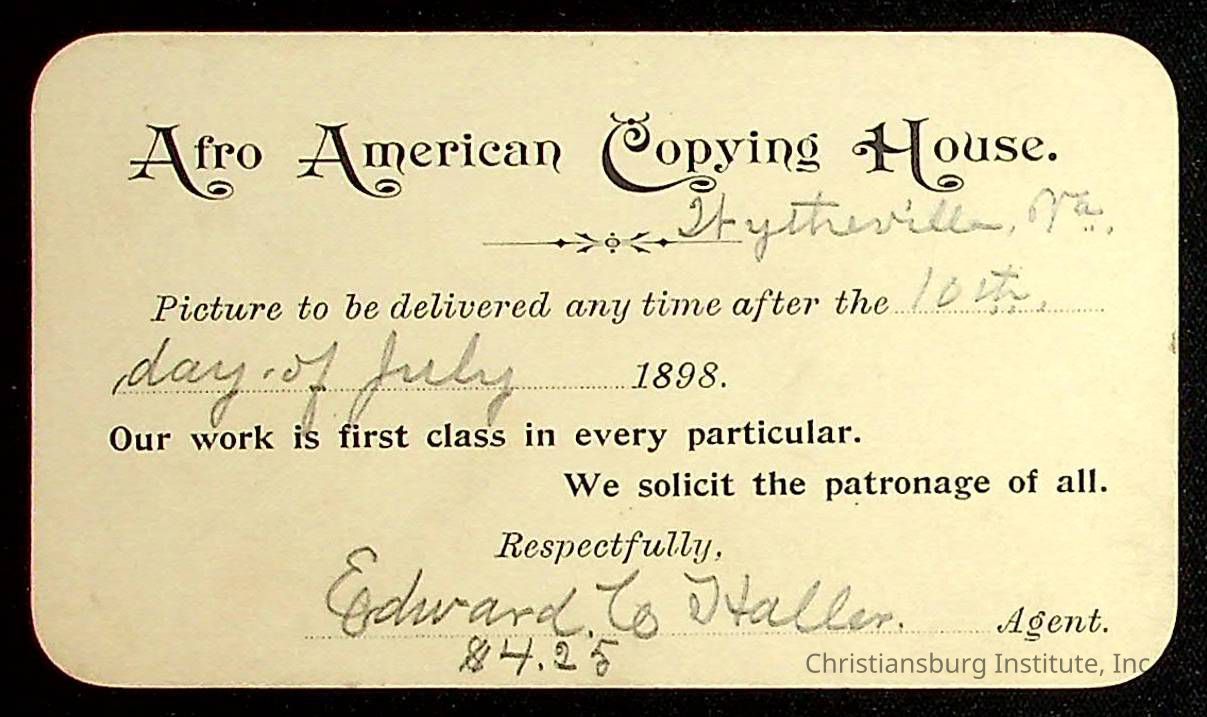 Afro American Copying House.
Wytheville, Va.
Picture to be delivered any time after the 10th,
day of July 1898.
Our work is first class in every particular.
We solicit the patronage of all.
Respectfully,
Edward C Haller. Agent.
$4.25
Christiansburg Institute, Inc